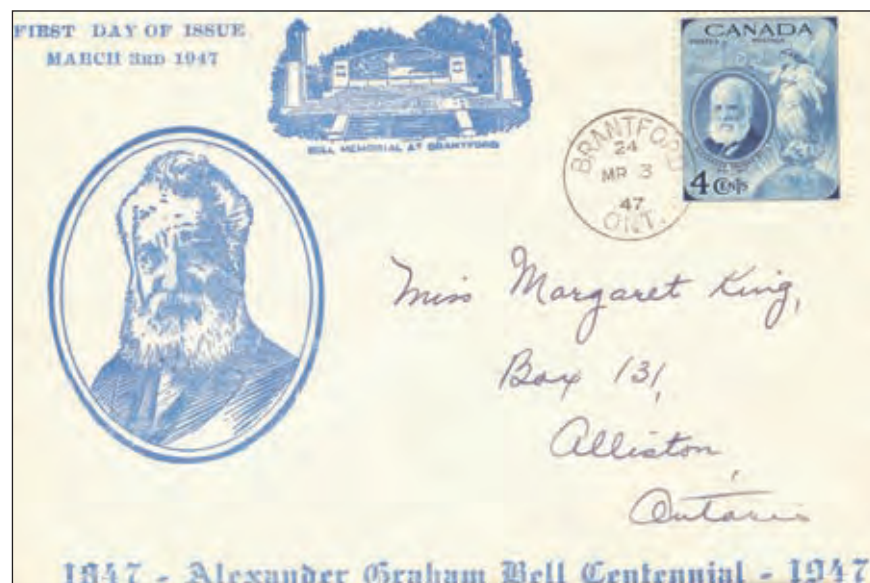 FIRST DAY OF ISSUE
MARCH 3RD 1947
BELL MEMORIAL AT BRANTFORD
CANADA
POSTES POSTAGE
4 CENTS
BRANTFORD
24
MR 3
47
ONT.
Miss Margaret King,
Box 131,
Alliston,
Ontario
1847 - Alexander Graham Bell Centennial - 1947